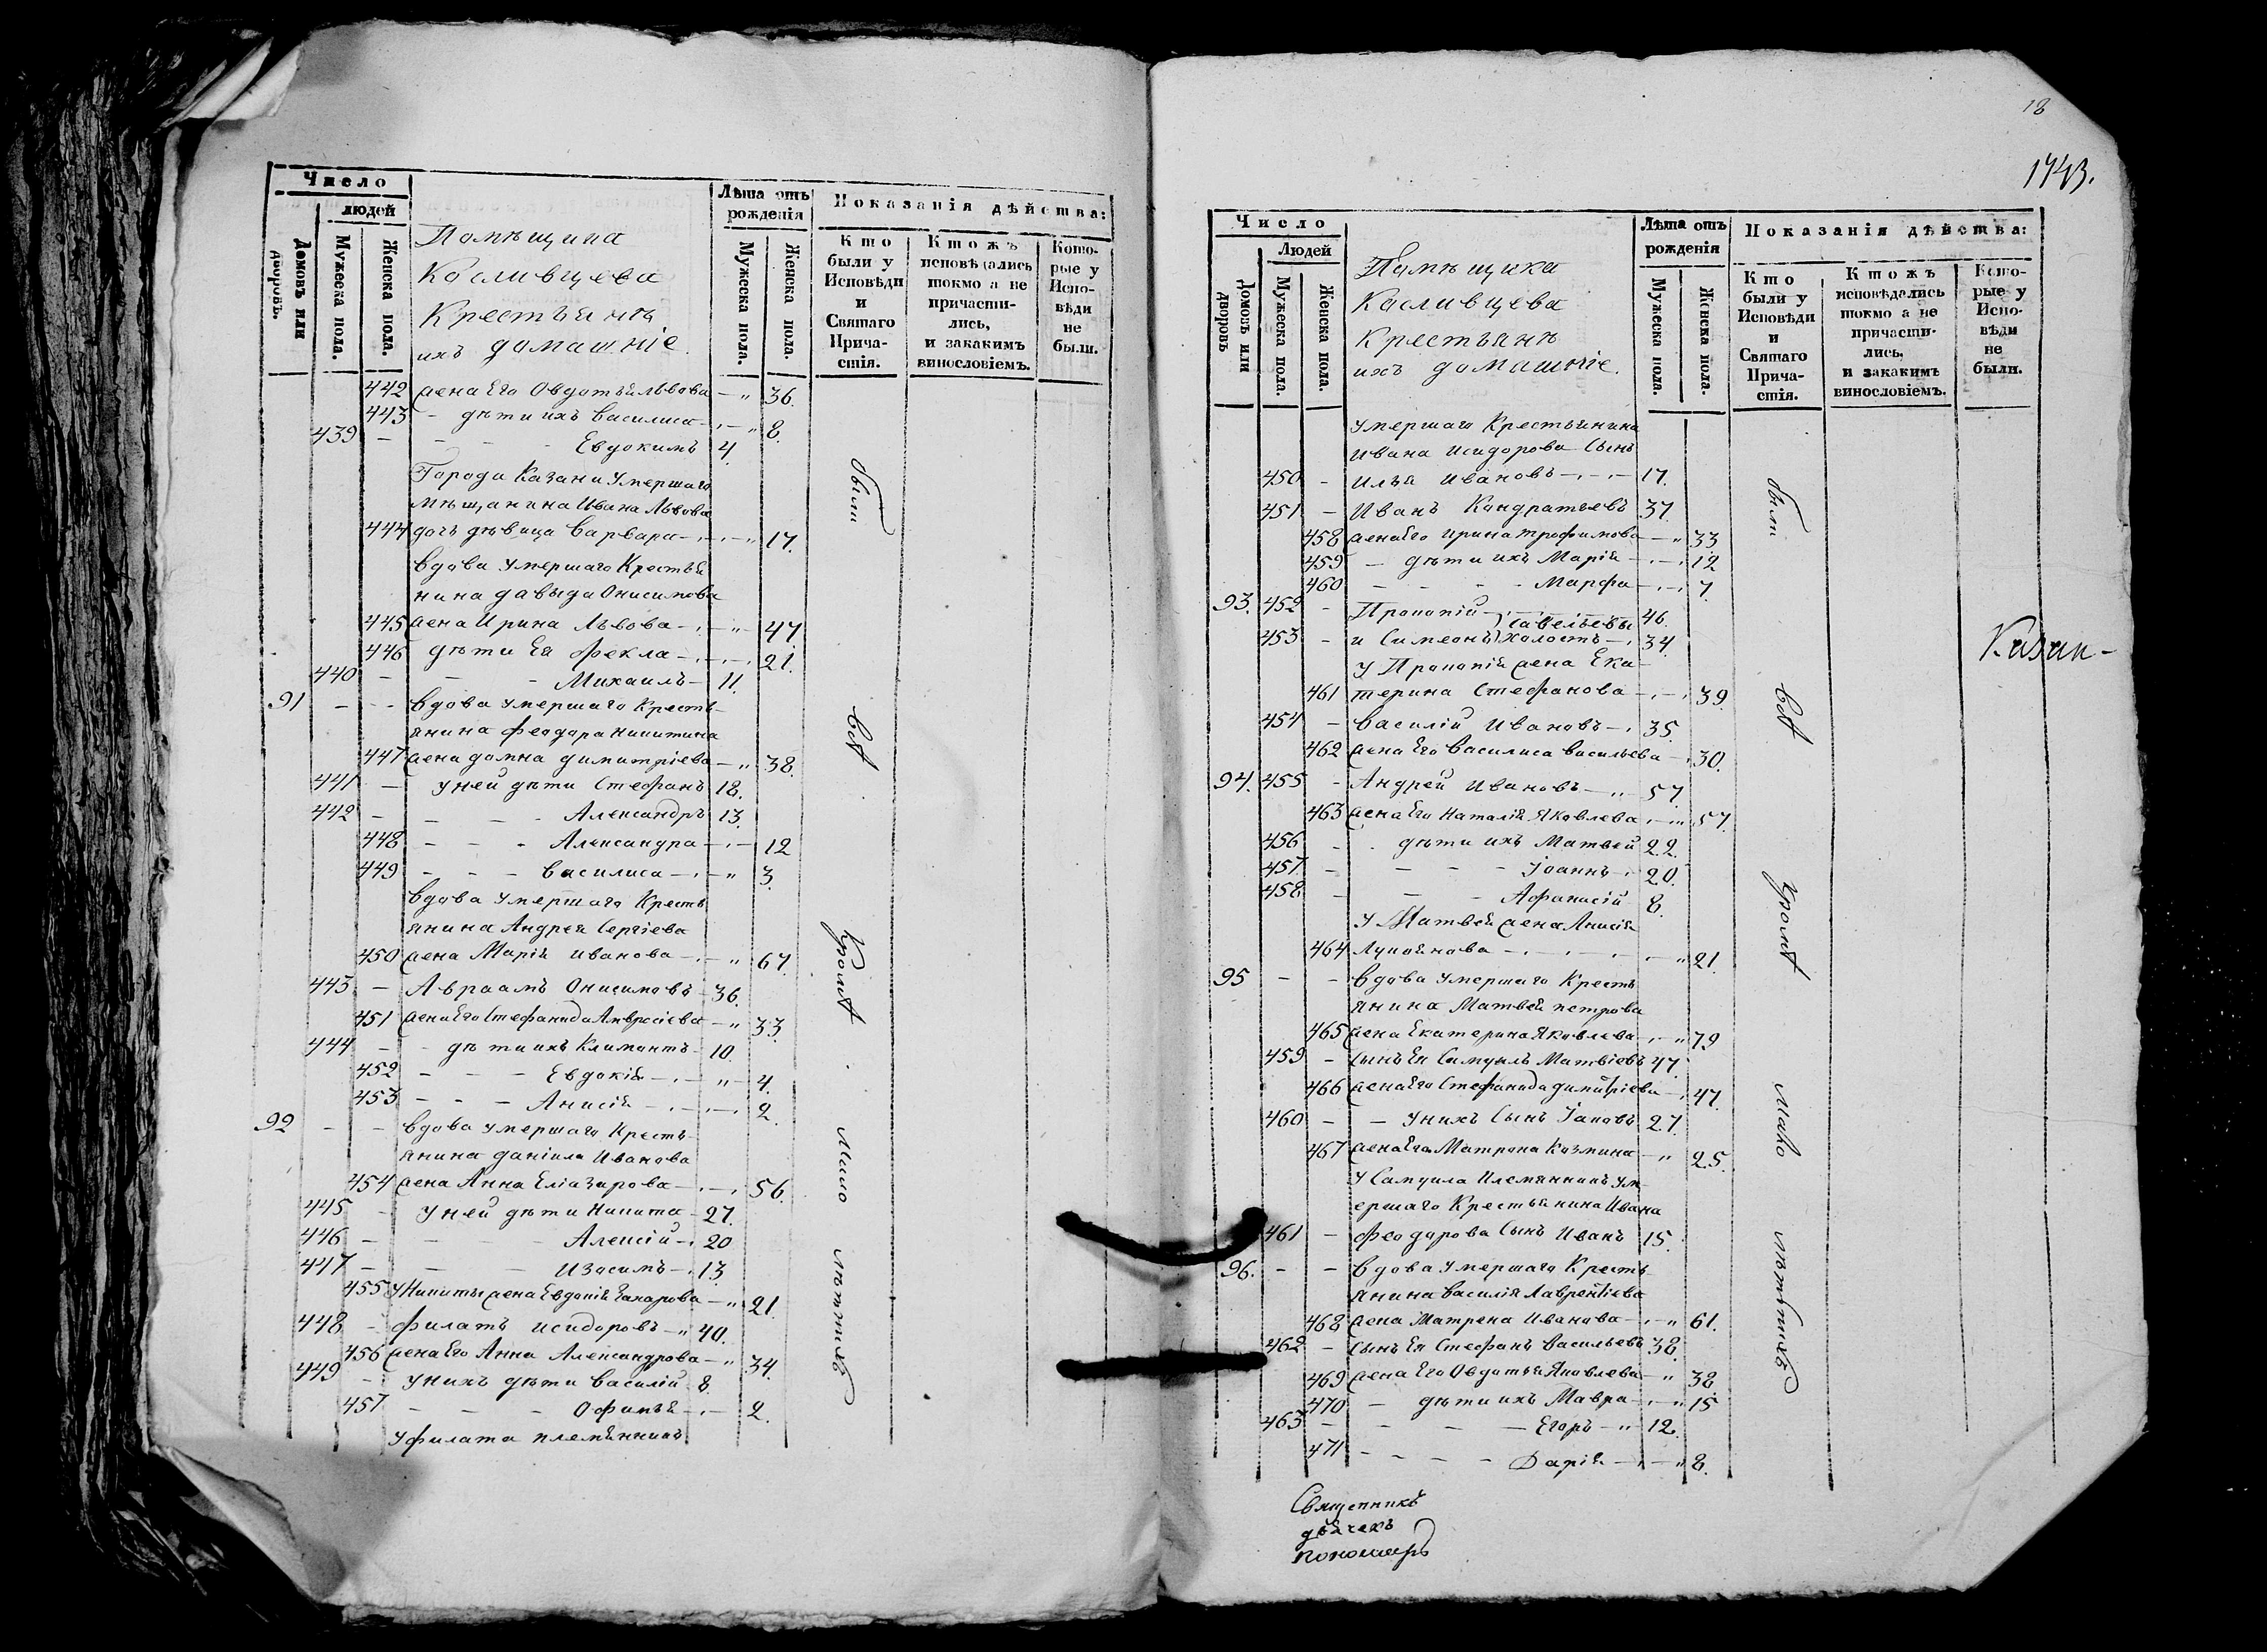 Число
людей
Домовъ или дворовъ.
Мужеска пола.
Женска пола.
Помѣщика
Косливцева
Крестьянъ
ихъ домашніе
Лѣта отъ
рожденія
Мужеска пола.
Женска пола.
Показанія дѣйства:
Кто
были у
Исповѣди
и
Святаго
Прича-
стія.
Ктожъ
исповѣдались
токмо а не
причасти-
лись,
и закакимъ
винословіемъ.
Кото-
рые у
Испо-
вѣди
не
были.
442 жена Его Овдотья Львова 36.
443 дѣти ихъ Василиса 8.
439 Евдокимъ 4.
Города Казани Умершаго
мѣщанина Ивана Львова
444 дочь дѣвица Варвара 17.
Вдова Умершаго Крестья
нина давыда Онисимова
445 жена Ирина Львова 47.
446 дѣти Ея Фекла 21.
440 Михаилъ 11.
91 Вдова Умершаго Кресть-
янина Феодора Никитина
447 жена домна димитріева 38.
441 Уней дѣти Стефанъ 18.
442 Александръ 13.
448 Александра 12
449 Василиса 3.
Вдова Умершаго Кресть
янина Андрея Сергіева
450 жена Марія Иванова 67.
443 Авраамъ Онисимовъ 36.
451 жена Его Стефанида Амвросіева 33.
444 дѣти ихъ Климентъ 10.
452 Евдокія 4.
453 Анисія 2.
92 Вдова Умершаго Кресть-
янина даніила Иванова
454 жена Анна Еліазарова 56.
445 Уней дѣти Никита 27.
446 Алексій 20
447 Изосимъ 13.
455 У Никиты жена Евдокія Захарова 21.
448 Филатъ Исидоровъ 40.
456 жена Его Анна Александрова 34.
449 Унихъ дѣти Василій 8.
457 Офимья 2.
У филата племянникъ
были
всѣ
Кромѣ
Мало
лѣтнихъ
18
1743.
Число
Людей
Домовъ или дворовъ
Мужеска пола
Женска пола.
Помѣщика
Косливцева
Крестьянъ
ихъ домашніе.
Лѣта отъ
рожденія
Мужеска пола.
Женска пола.
Показанія дѣйства:
Кто
были у
Исповѣди
и
Святаго
Прича-
стія.
Ктожъ
исповѣдались
токмо а не
причасти-
лись,
и закакимъ
винословіемъ.
Кото-
рые у
Испо-
вѣди
не
были.
Умершаго Крестьянина
Ивана Исидорова Сынъ
450 Илья Ивановъ 17.
451 Иванъ Кондратьевъ 37.
458 жена Его Ирина Трофимова 33
459 дѣти ихъ Марія 12
460 Марфа 7.
93. 452 Прокопій Савельевы 46.
453 и Симеонъ холостъ 34.
У Прокопія жена Ека-
461 терина Стефанова 39
454 Василій Ивановъ 35.
462 жена Его Василиса Васильева 30.
94. 455 Андрей Ивановъ 57.
463 жена Его Наталія Яковлева 57.
456 дѣти ихъ Матвей 22.
457 Іоаннъ 20.
458 Афанасій 8.
У Матвея жена Анисія
464 Лукоянова 21.
95 Вдова Умершаго Кресть
янина Матвея петрова
465 жена Екатерина Яковлева 79
459 Сынъ Ея Самуилъ Матвіевъ 47.
466 жена Его Стефанида димитріева 47.
460 Унихъ Сынъ Іаковъ 27.
467 жена Его Матрона Козмина 25.
У Самуила Племянникъ Ум-
ершаго Крестьянина Ивана
461 Феодорова Сынъ Иванъ 15.
96. Вдова Умершаго Кресть
янина Василія Лаврентіева
468 жена Матрена Иванова 61.
462 Сынъ Ея Стефанъ Васильевъ 38.
469 жена Его Овдотья Яковлева 38.
470 дѣти ихъ Мавра 15
463 Егоръ 12.
471 Дарія 8.
были
всѣ
Кромѣ
Мало
лѣтнихъ
Казан-
Священникъ
дьячекъ
пономарь